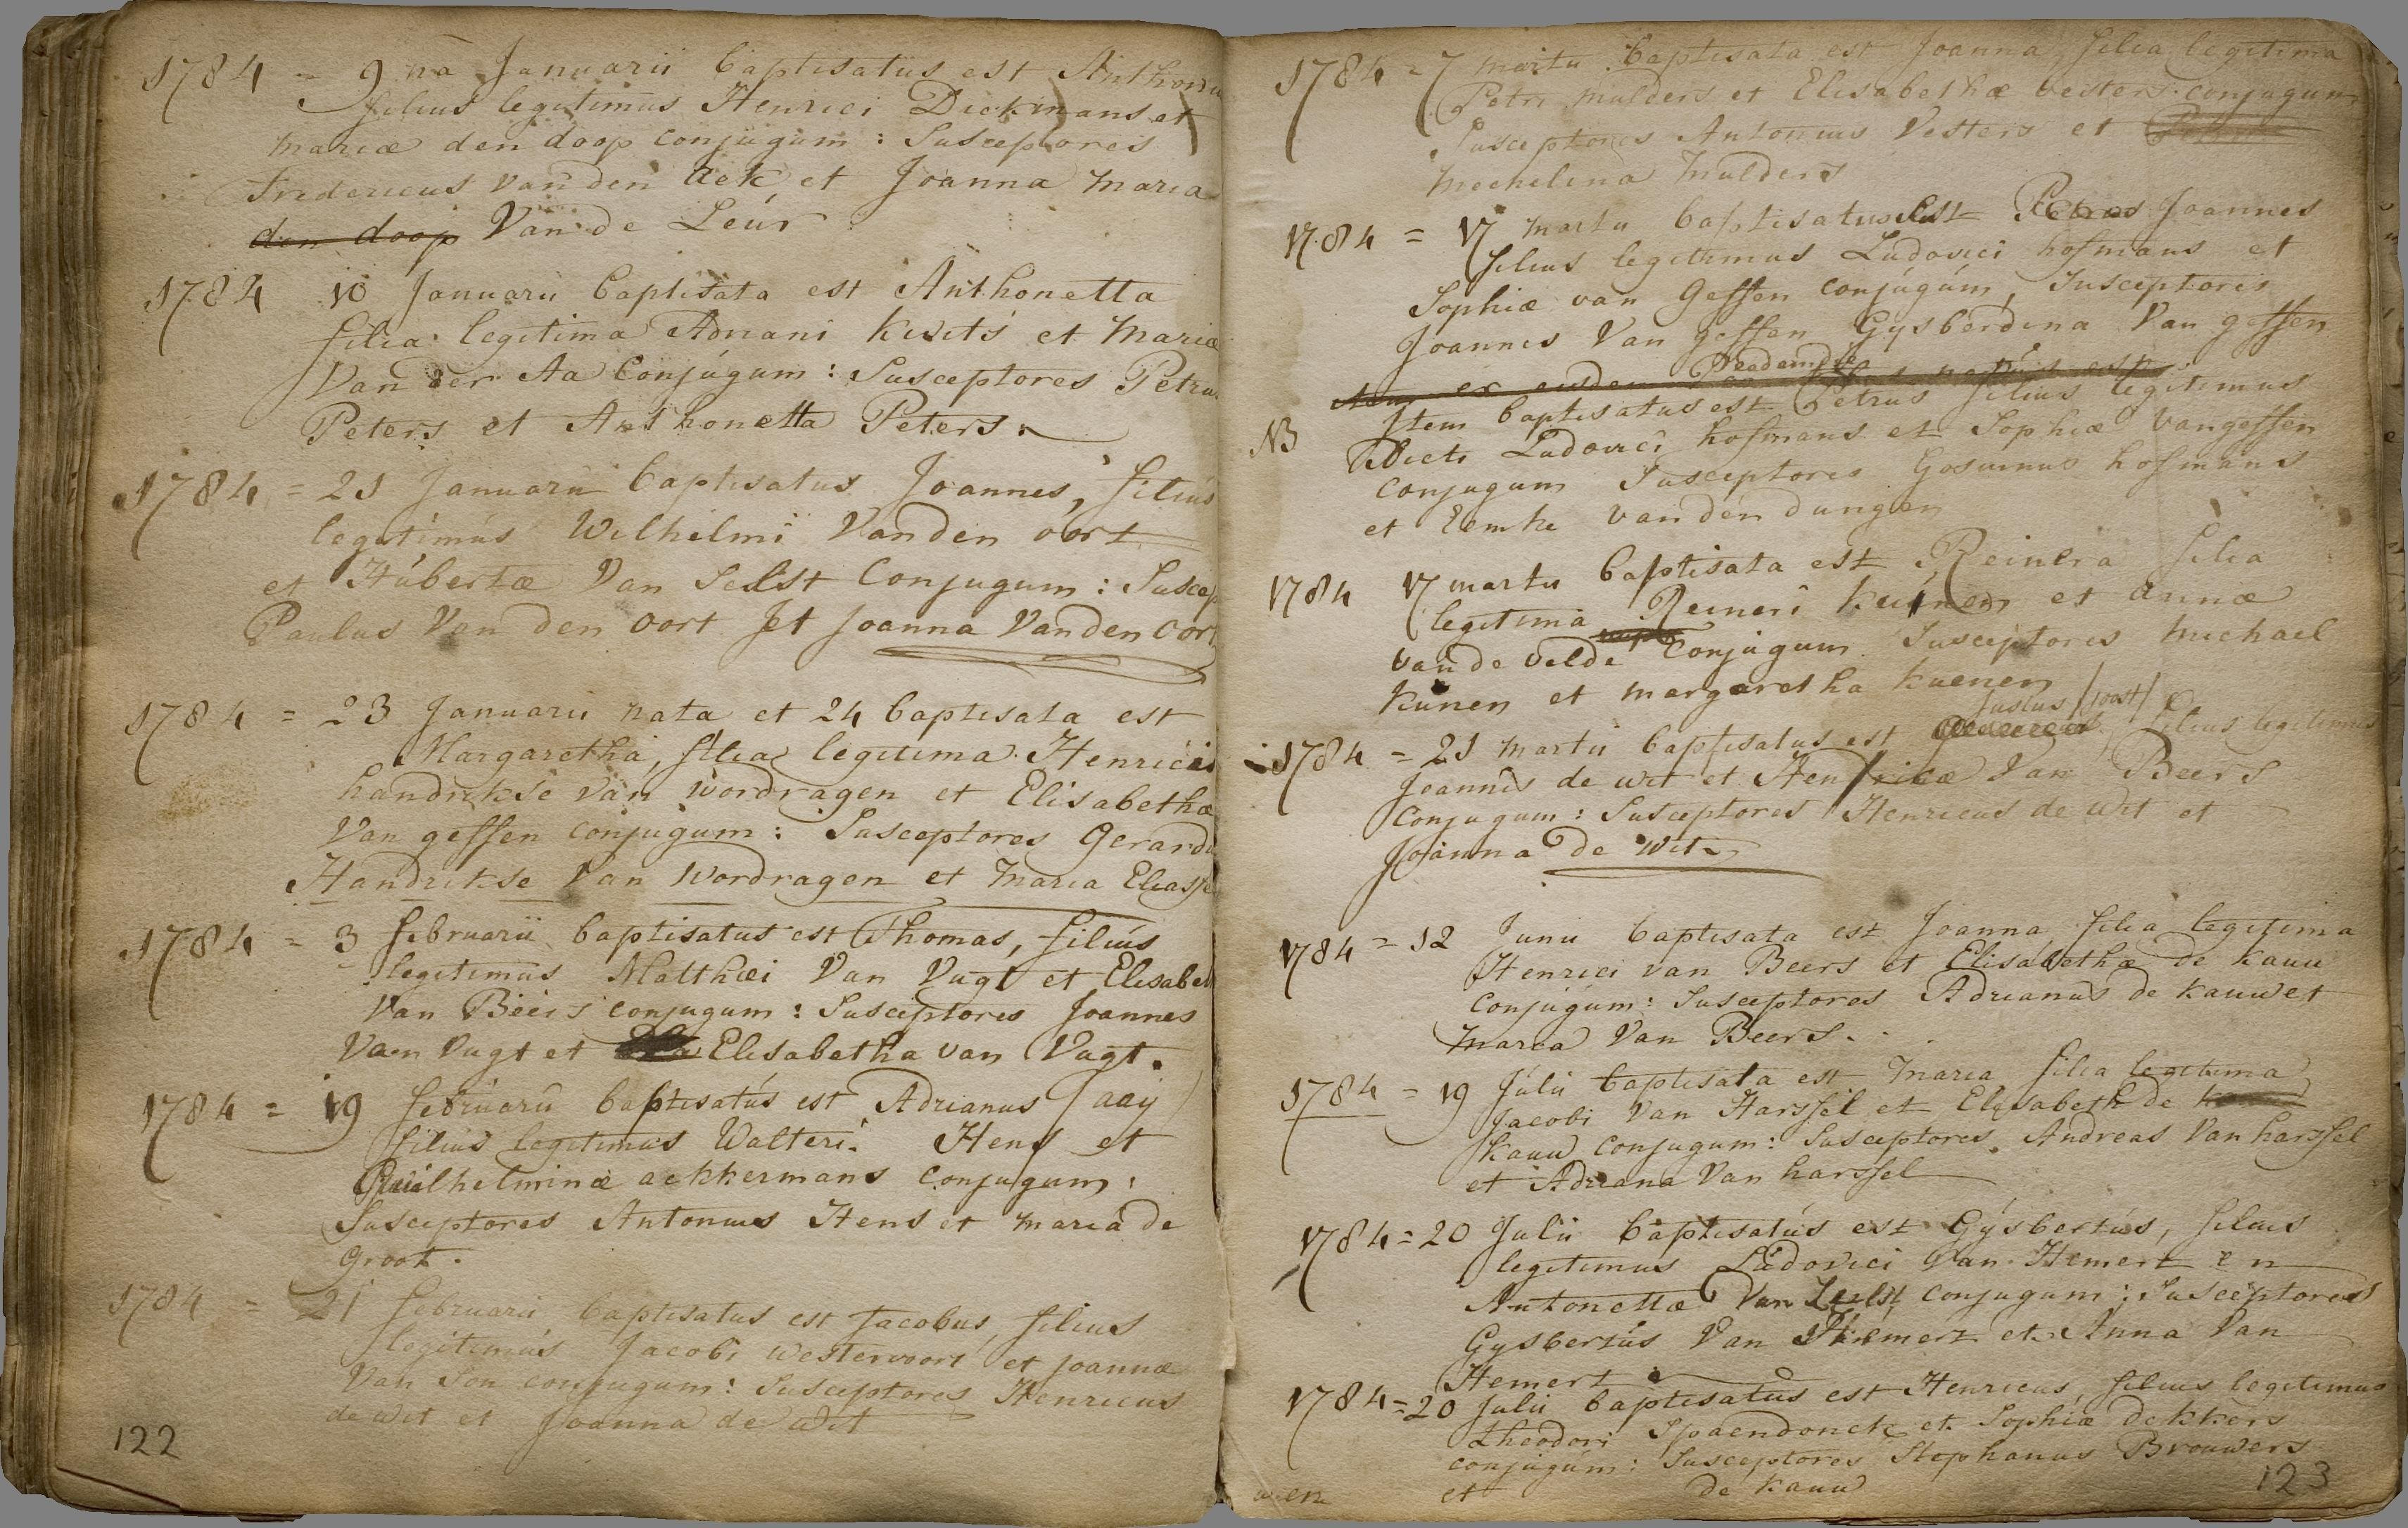 1784 = 9 na Januarii baptisatus est Anthoniu
filius legitimus Henrici Dickmans et
mariæ den doop conjugum : Susceptores
Fredericus van den Aek et Joanna Maria
den doop Van de Leúr
1784 10 Januarii baptisata est Anthonetta
filia legitima Adriani et Mariæ
Van der Aa Conjúgum : Susceptores Petrus
Peters et Anthonetta Peters.
1784 = 21 Januarii baptisatus Joannes, filius
legitimús Wilhelmi Vanden oort
et Húbertæ Van Seelst Conjugum : Suscep
Paulus Van den oort Et Joanna Vanden oort
1784 = 23 Januarii nata et 24 baptisata est
Margaretha, filia legitima Henrici
handrikse van wordragen et Elisabethæ
Van gessen conjugum : Susceptores Gerardu
Handrikse Van Wordragen et Maria Eliasse
1784 = 3 februarii baptisatus est Thomas, filiús
legitimus Matthæi Van Vugt et Elisabet
Van Beers conjugum : Susceptores Joannes
Van Vugt et Elisabetha van Vugt.
1784 = 19 februarii baptisatús est Adrianus Jaay
filius legitimus Walteri Hens et
Guilhelminæ ackkermans conjugum :
Susceptores Antonius Hens et maria de
Groot.
1784 = 21 februarii baptisatus est Jacobus, filius
legitimús Jacobi westervoort et joannæ
Van Son conjugum : Susceptores Henricus
de wit et Joanna de Wit
122
1784 = 7 martii baptisata est Joanna filia legitima
Petri mulders et Elisabethæ vesters conjugum
Susceptores Antonius Vesters et
Mechelina Mulders
1784 = 17 martii baptisatus est Petrus Joannes
filius legitimus Ludovici hofmans et
Sophiæ van Gessen conjúgúm, Susceptores
Joannes Van gessen Gysberdina Van gessen
eadem die
NB Item baptisatus est Petrus filius legitimus
dicti Ludovici hofmans et Sophiæ van gessen
conjugum Susceptores Gosuinus hofmans
et Eemke van den dungen
1784 17 martii baptisata est Reinera filia
legitima Reineri kuinen et annæ
van de velde Conjugum Susceptores Michael
Kúnen et margaretha kuenen
Justus /joost/
1784 = 21 martii baptisatus est filius legitimus
Joannis de wit et Henricæ Van Beers
Conjugum : Susceptores Henricus de Wit et
Joanna de Wit
1784 = 12 Junii baptisata est Joanna filia legitima
Henrici van Beers et Elisabethæ de kauw
conjúgum : Susceptores Adrianus de kauw et
Maria Van Beers.
1784 = 19 Júlii baptisata est Maria filia legitima
Jacobi Van Harssel et Elisabeth de
kauw conjugum : Susceptores Andreas Van harssel
et Adriana Van harssel
1784 = 20 Julii baptisatús est Gýsbertús, filius
legitimus Ludovici Van Hemert en
Antonettæ Van Zeelst conjugum : Susceptores
Gysbertús Van Hemert et Anna Van
Hemert
1784 = 20 Julii baptisatus est Henricus, filius legitimus
Theodori Spaendonck et Sophiæ dekkers
conjúgúm : Susceptores Stephanus Brouwers
et de kauw
123